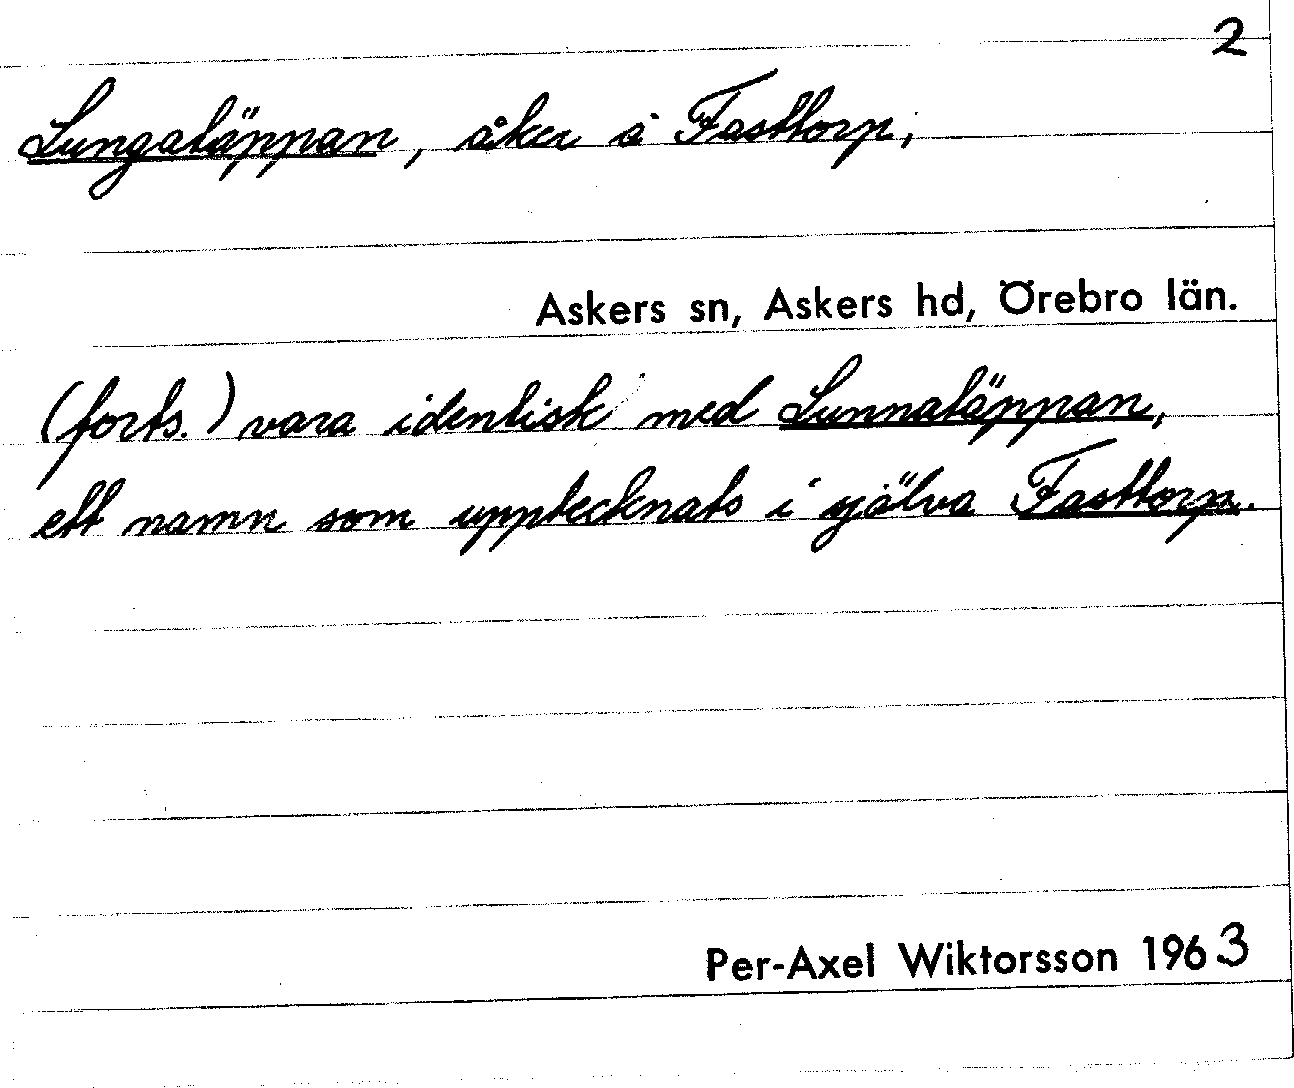 2
Lungatäppan, åker å Fasttorp,
Askers sn, Askers hd, Örebro län.
(forts.) vara identisk med Lunnatäppan,
ett namn som upptecknats i själva Fasttorp.
Per-Axel Wiktorsson 1963